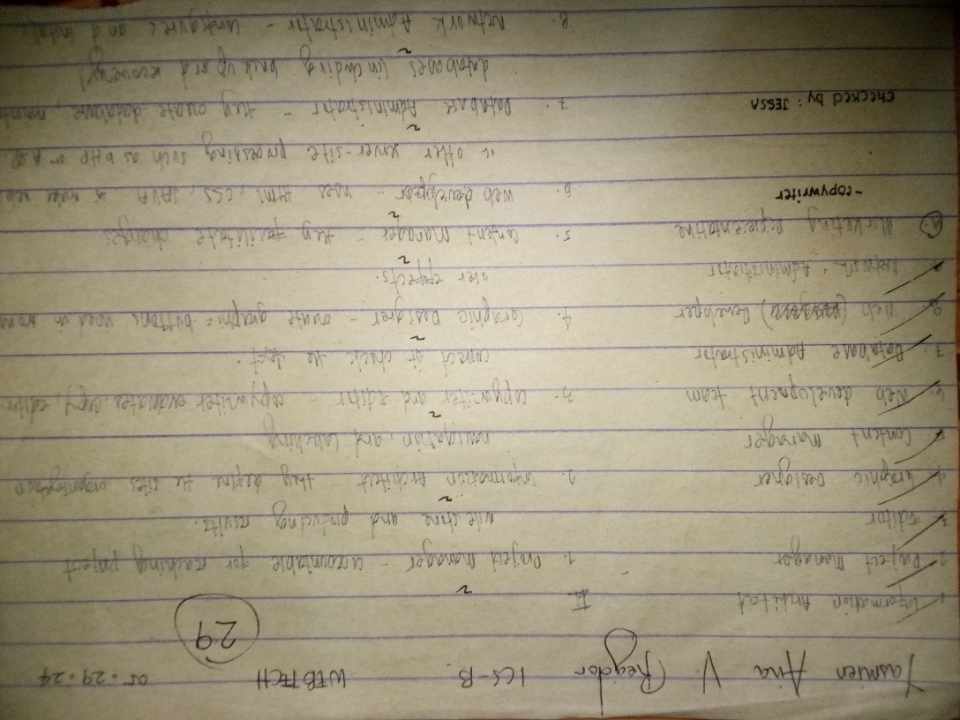 Yasmien Aria V. Regidor ICS-B WEBTECH 05.29.24
29
1. Information Architect
2. Project Manager
3. Editor
4. Graphic Designer
5. Content Manager
6. Web development team
7. Database Administrator
8. Web Developer
9. Network Administrator
10. Marketing Representative
- copywriter
checked by: JESSA
II
2
1. Project Manager - accountable for reaching project
milestone and producing results.
2
2. Information Architect they define the sites organization
navigation, and labeling
2
3. copywriter and Editor - copywriter copy, editor
correct or check the text.
2
4. Graphic Designer - create graphic buttons used in
effects.
2
5. Content Manager - they facilitate changes
2
6. Web developer - uses HTML, CSS, JAVA
other server-site processing such as PHP or
2
7. Database Administrator - they create database
databases (including back up and recovery)
2
8. Network Administrator - configures and